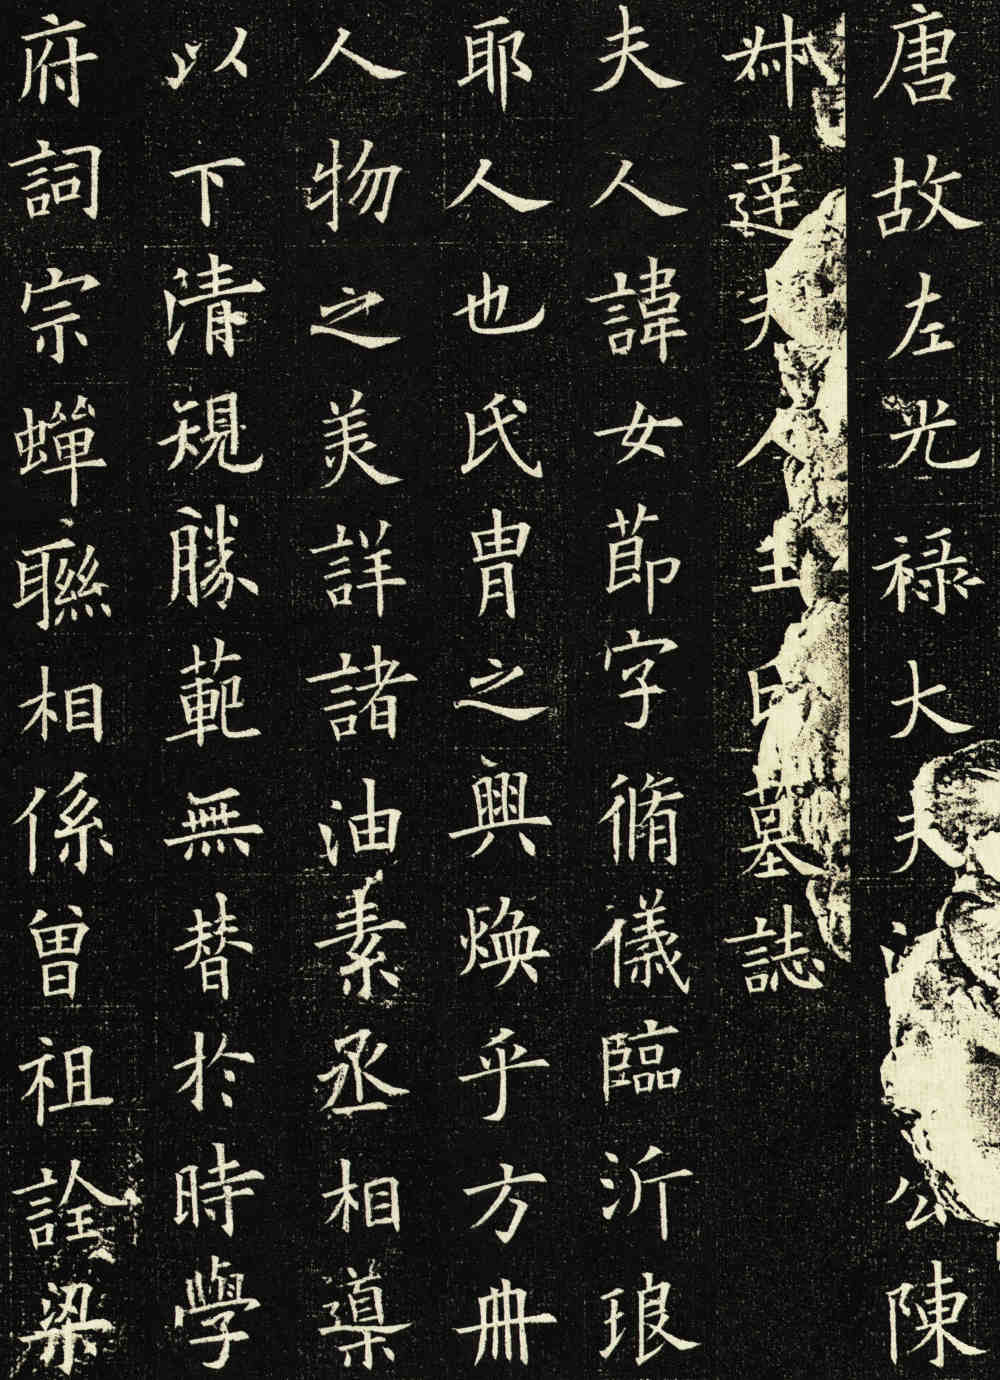 唐故左光祿大夫公陳
叔達夫人王氏墓誌
夫人諱女節字脩儀臨沂琅
耶人也氏冑之興煥乎方冊
人物之美詳諸油素丞相導
以下清規勝範無替於時學
府詞宗蟬聯相係曾祖詮梁